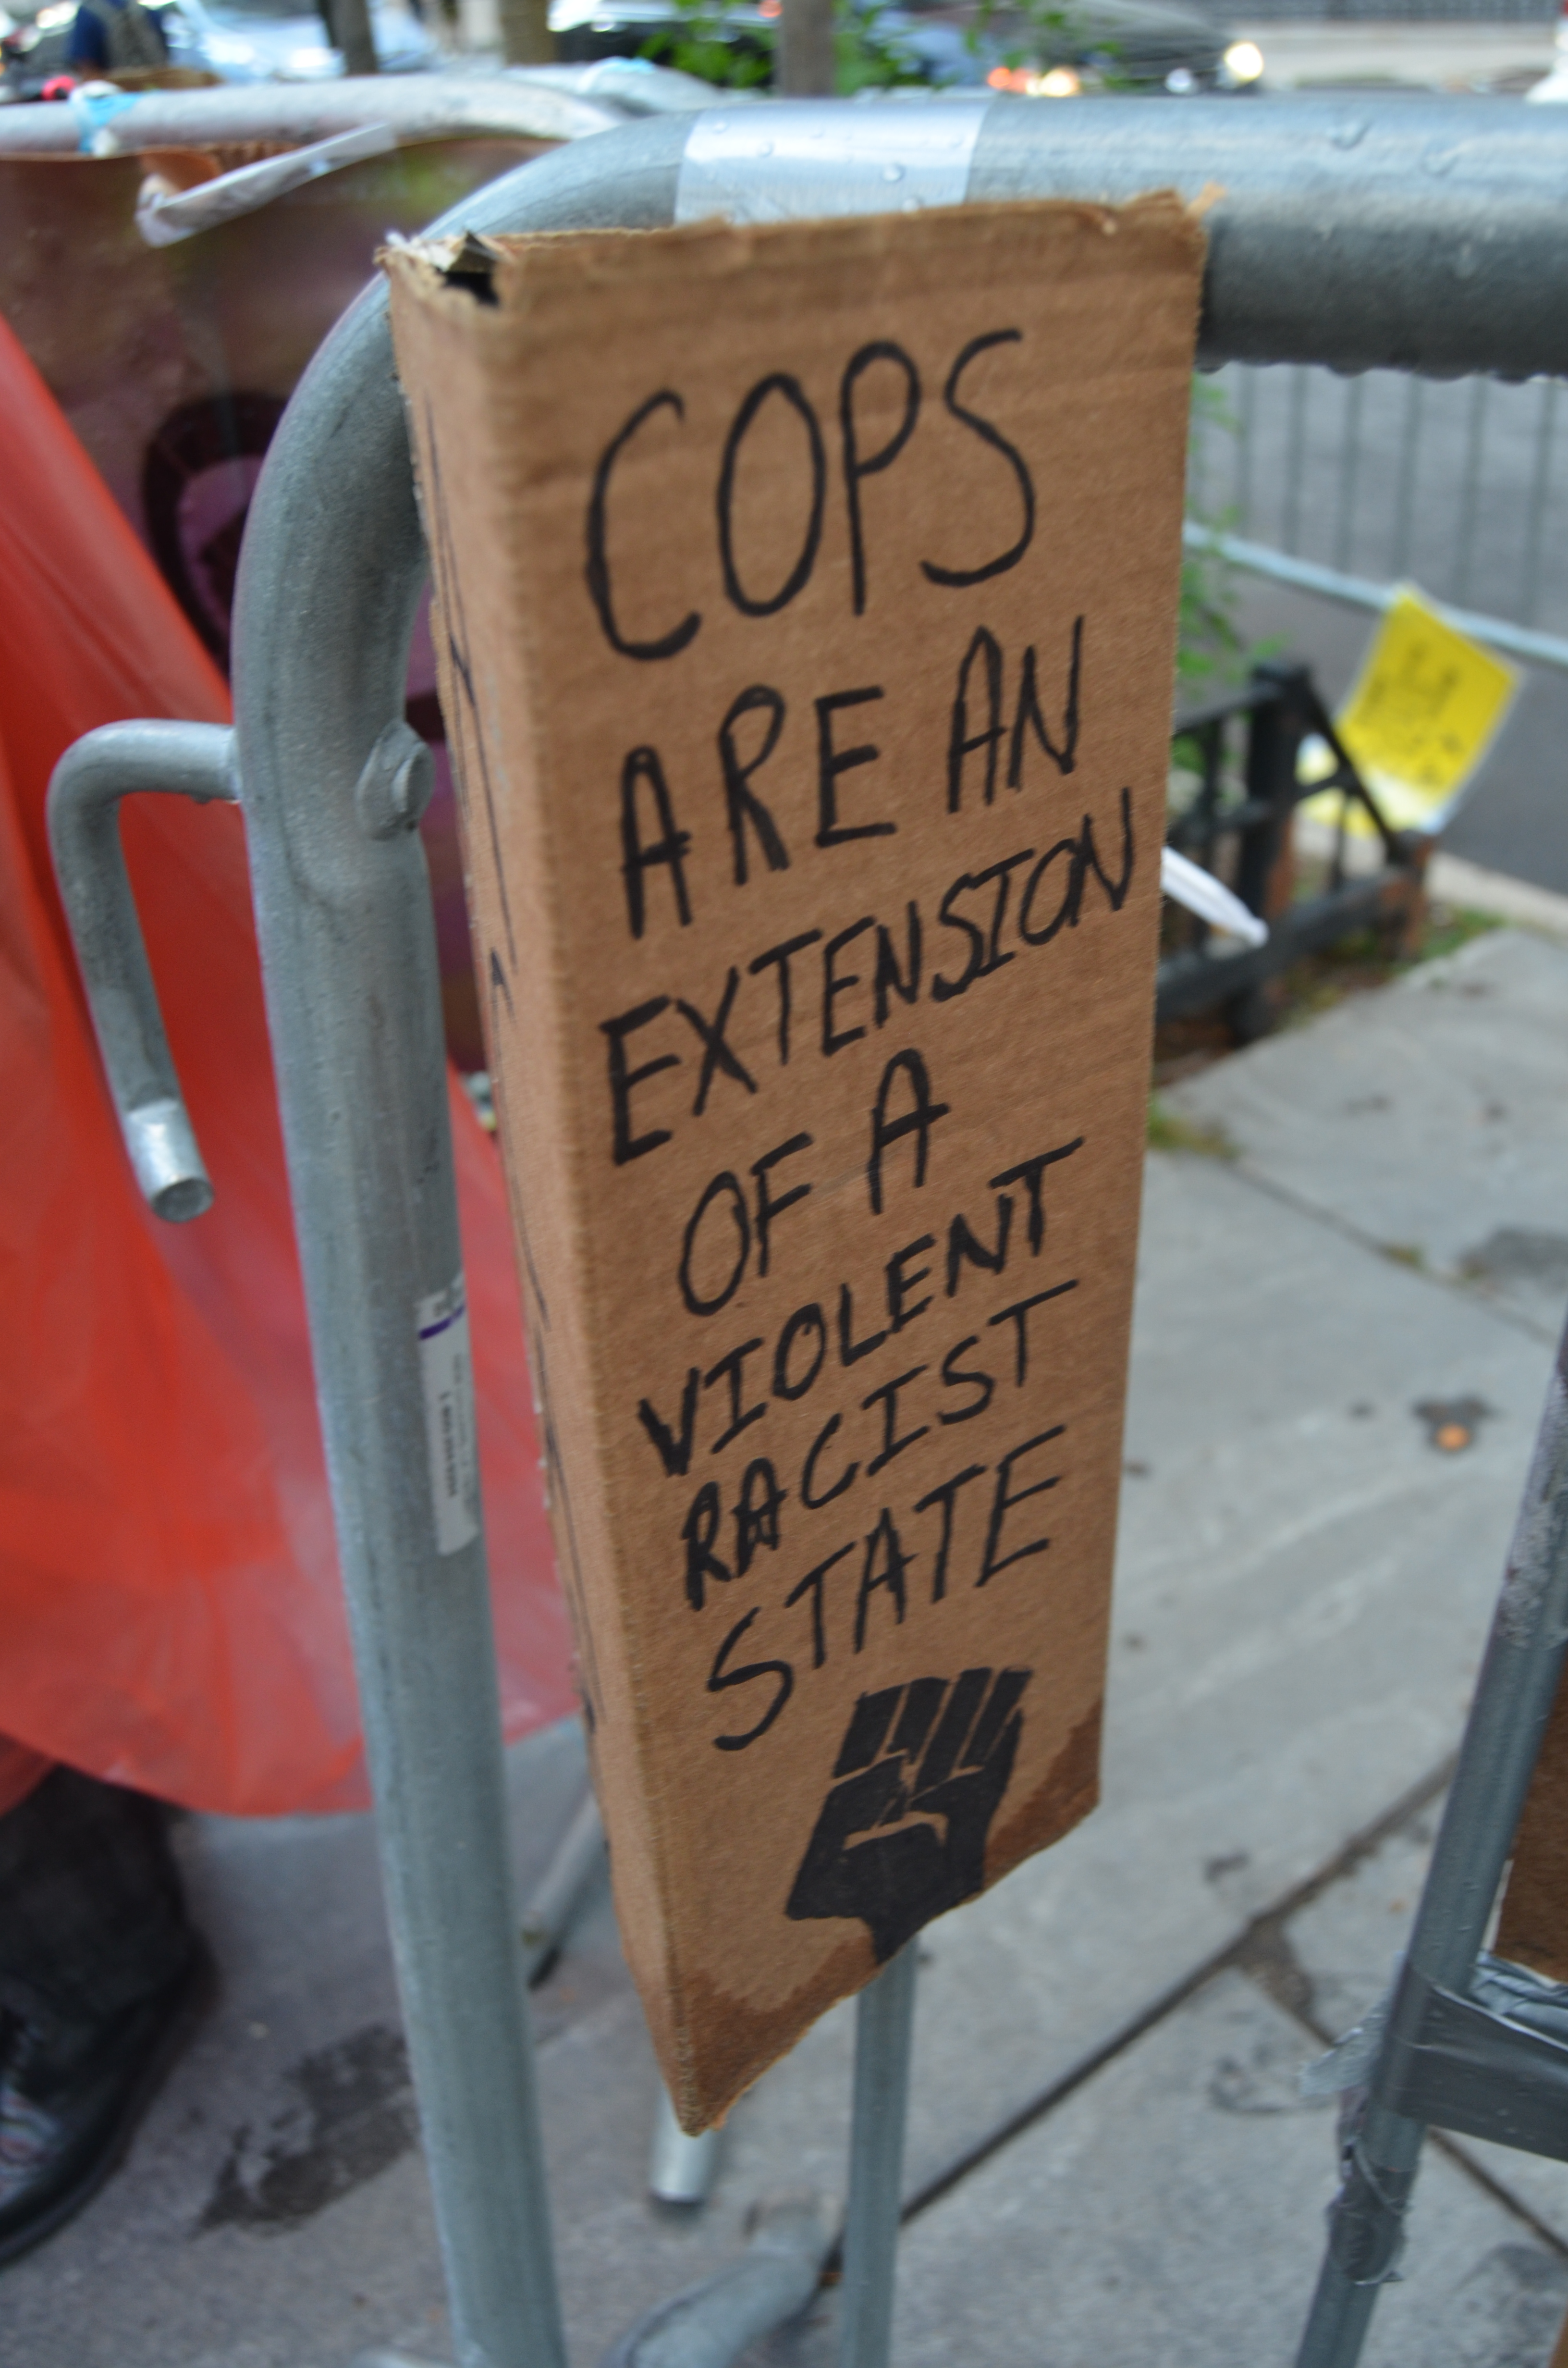 COPS
ARE AN
EXTENSION
OF A
VIOLENT
RACIST
STATE